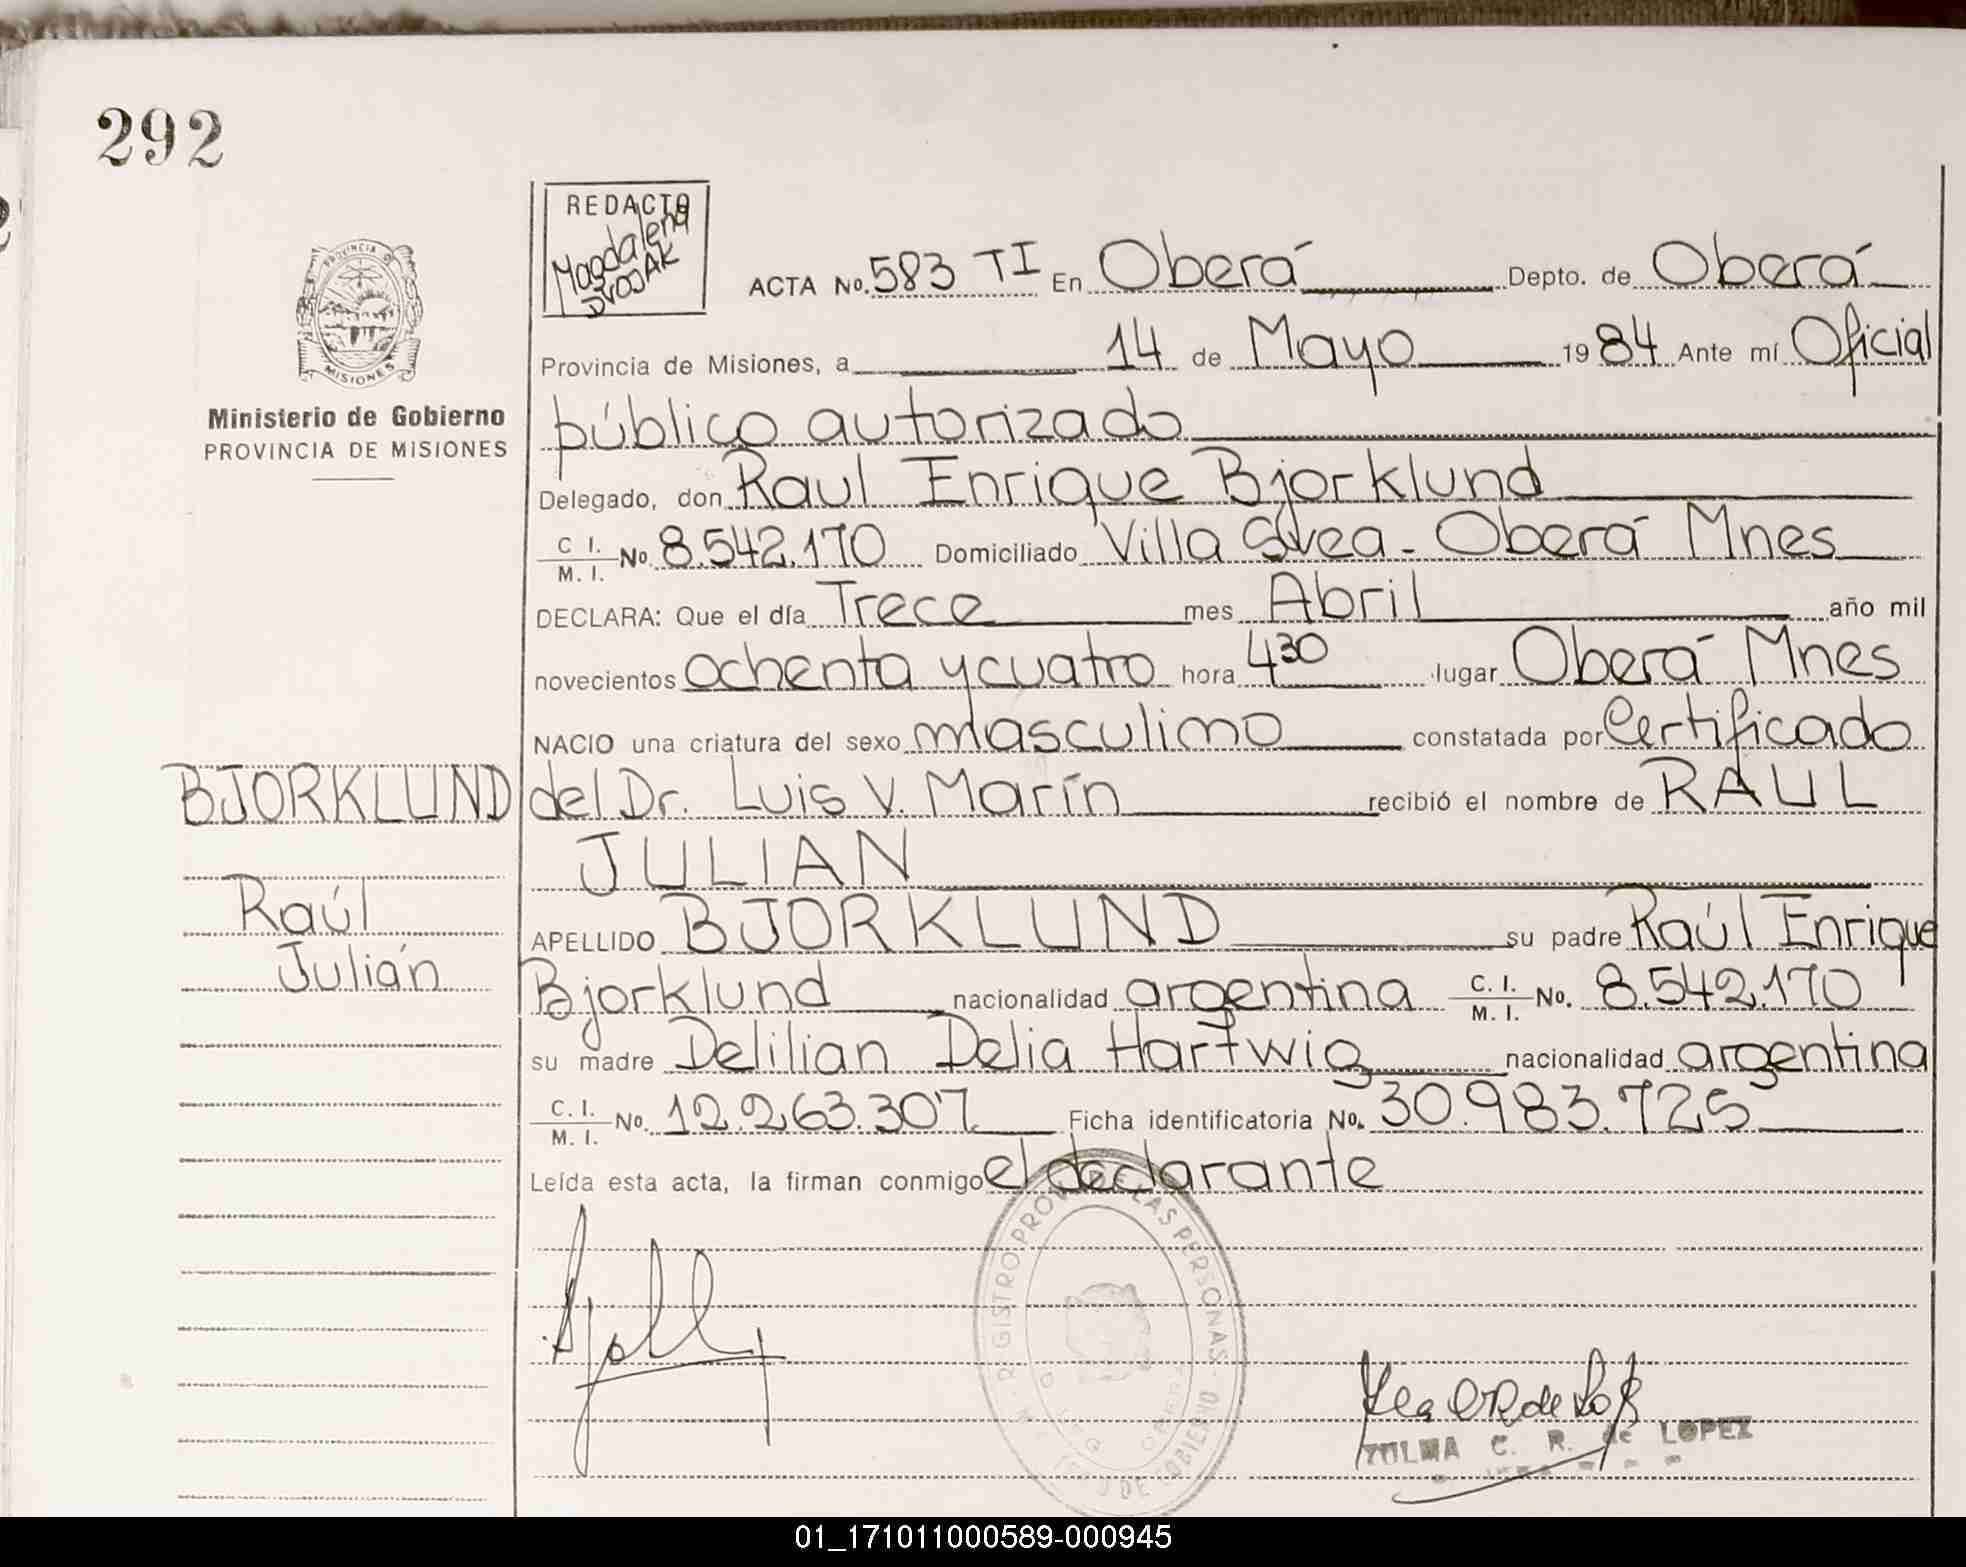 292
REDACTO
Magdalena
DVOJAK
PROVINCIA D
MISIONES
Ministerio de Gobierno
PROVINCIA DE MISIONES
ACTA No. 583 TI En Oberá Depto. de Oberá
Provincia de Misiones, a 14 de Mayo 1984 Ante mí Oficial
público autorizado
Delegado, don Raul Enrique Bjorklund
C I. M. I. No. 8.542.170 Domiciliado Villa Svea - Oberá Mnes
DECLARA: Que el día Trece mes Abril año mil
novecientos ochenta y cuatro hora 4 30 lugar Oberá Mnes
NACIO una criatura del sexo masculino constatada por Certificado
BJORKLUND del Dr. Luis V. Marín recibió el nombre de RAUL
JULIAN
Raúl
APELLIDO BJORKLUND su padre Raúl Enrique
Julián
Bjorklund nacionalidad argentina C. I. M. I. No. 8.542.170
su madre Delilian Delia Hartwig nacionalidad argentina
C. I. M. I. No. 12.263.307 Ficha identificatoria No. 30.983.725
Leída esta acta, la firman conmigo el declarante
REGISTRO PROV. DE LAS PERSONAS
DE GOBIERNO
ZULMA C. R. de LOPEZ
01_171011000589-000945